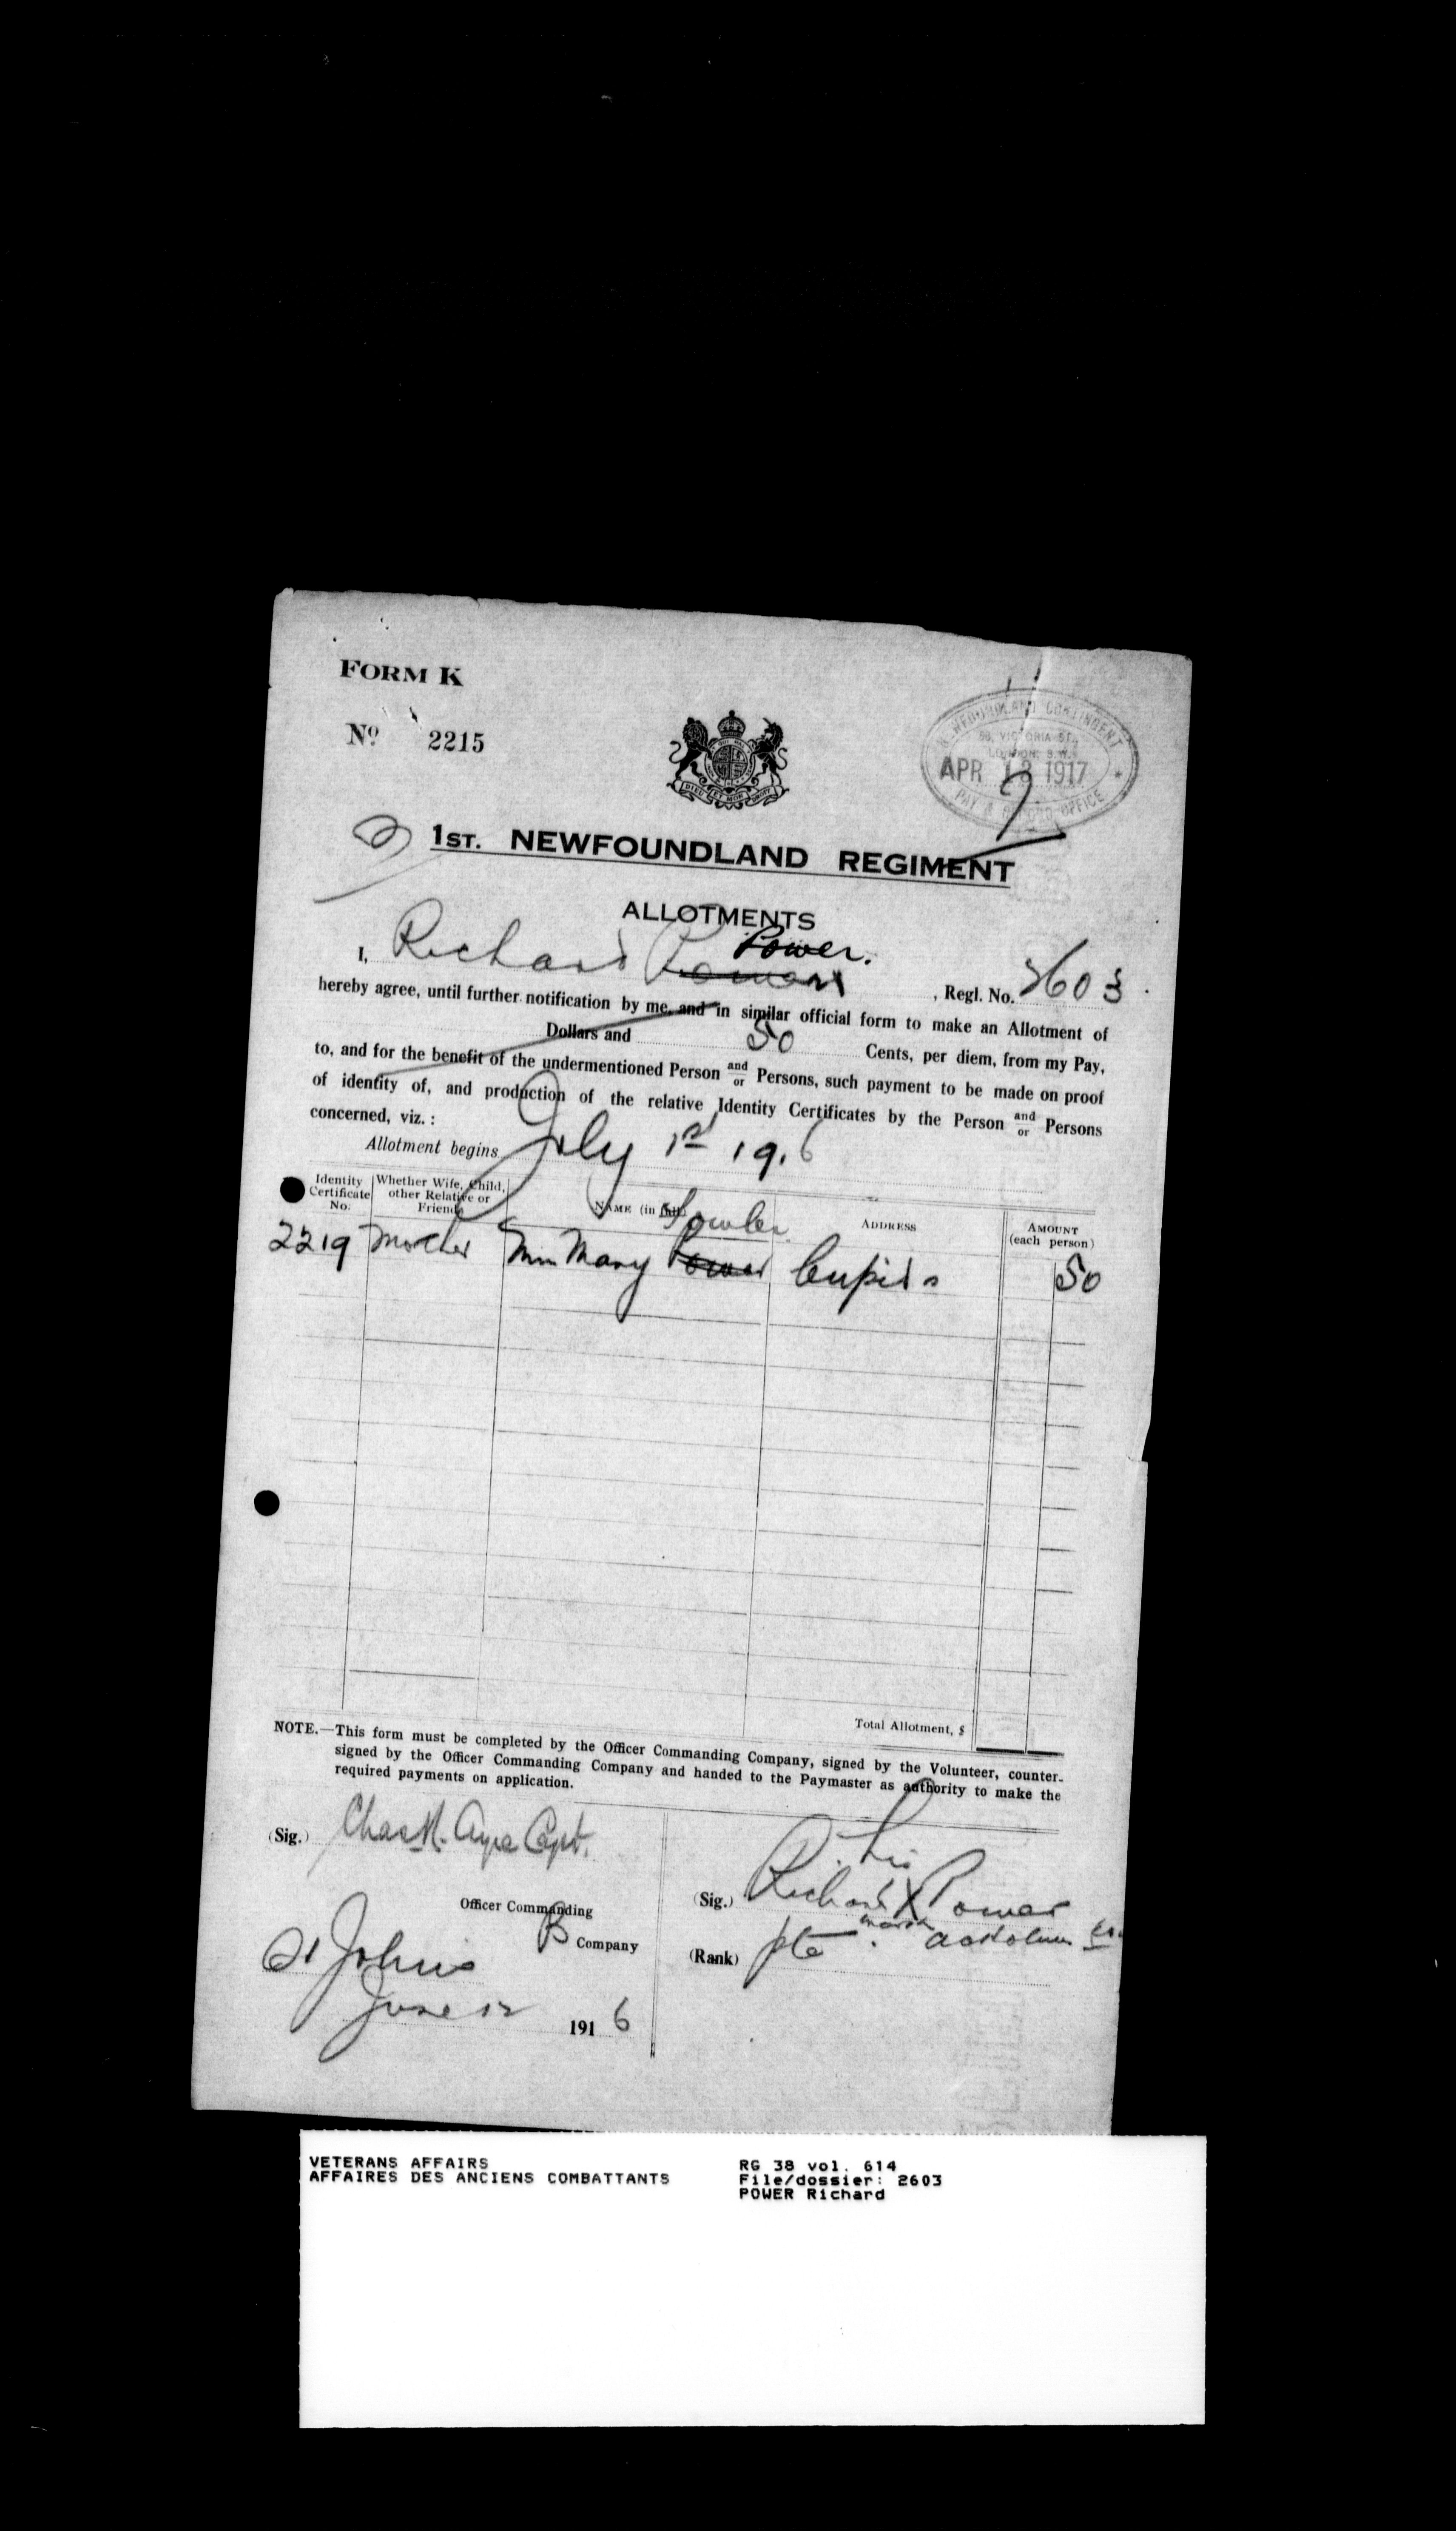 FORM K
No 2215
NEWFOUNDLAND CONTINGENT
58, VICTORIA ST.,
LONDON, S.W.
APR 13 1917
PAY & RECORD OFFICE
1ST. NEWFOUNDLAND REGIMENT
ALLOTMENTS
Power.
I, Richard , Regl. No. 2603
hereby agree, until further notification by me, and in similar official form to make an Allotment of
Dollars and 50 Cents, per diem, from my Pay,
to, and for the benefit of the undermentioned Person and/or Persons, such payment to be made on proof
of identity of, and production of the relative Identity Certificates by the Person and/or Persons
concerned, viz. :
Allotment begins July 1st 1916
Identity Certificate No. Whether Wife, Child, other Relative or Friend NAME (in full) ADDRESS AMOUNT (each person)
Fowler
2219 Mother Mrs Mary Power Cupids 50
Total Allotment, $
NOTE.—This form must be completed by the Officer Commanding Company, signed by the Volunteer, counter-
signed by the Officer Commanding Company and handed to the Paymaster as authority to make the
required payments on application.
(Sig.) Chas R. Ayre Capt.
Officer Commanding
B Company
St Johns
June 12 1916
his
(Sig.) Richard X Power
mark
(Rank) pte
VETERANS AFFAIRS
AFFAIRES DES ANCIENS COMBATTANTS
RG 38 vol. 614
File/dossier: 2603
POWER Richard